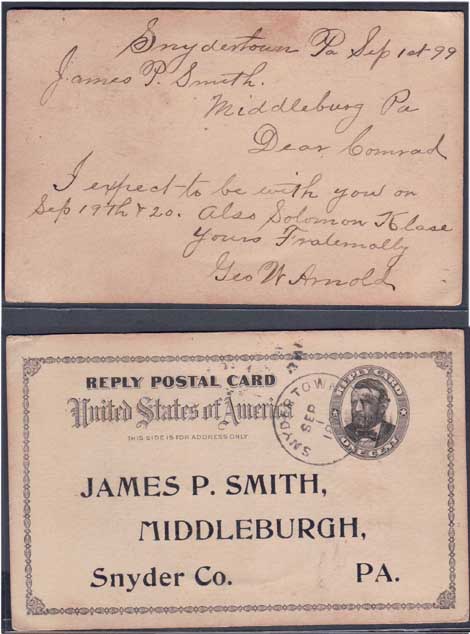 Snydertown Pa Sep 1st 99
James P. Smith.
Middleburg Pa
Dear Comrad
I expect to be with you on
Sep 19th & 20. Also Solomon Klase
Yours Fraternally
Geo W Arnold
REPLY POSTAL CARD
United States of America
THIS SIDE IS FOR ADDRESS ONLY
SNYDERTOWN
SEP
1
REPLY CARD
ONE CENT
JAMES P. SMITH,
MIDDLEBURGH,
Snyder Co. PA.